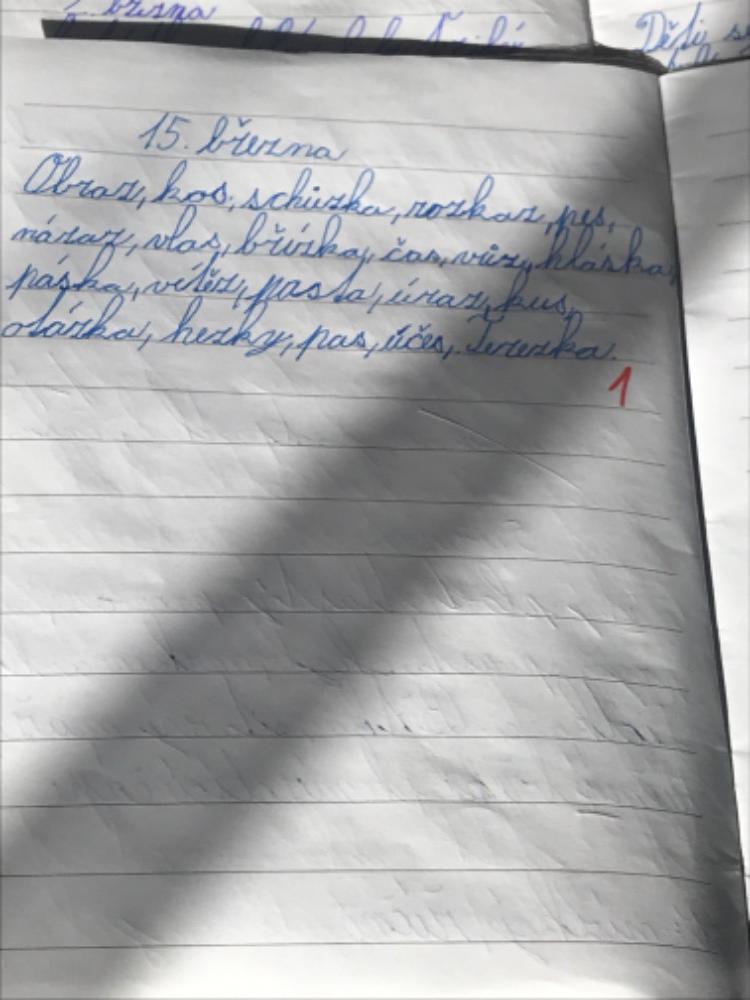 března
Děti
15. března
Obraz, kos, schůzka, rozkaz, pes,
náraz, vlas, břízka, čas, vůz, hláska,
páska, vítěz, pasta, úraz, kus,
otázka, hezky, pas, účes, Terezka.
1